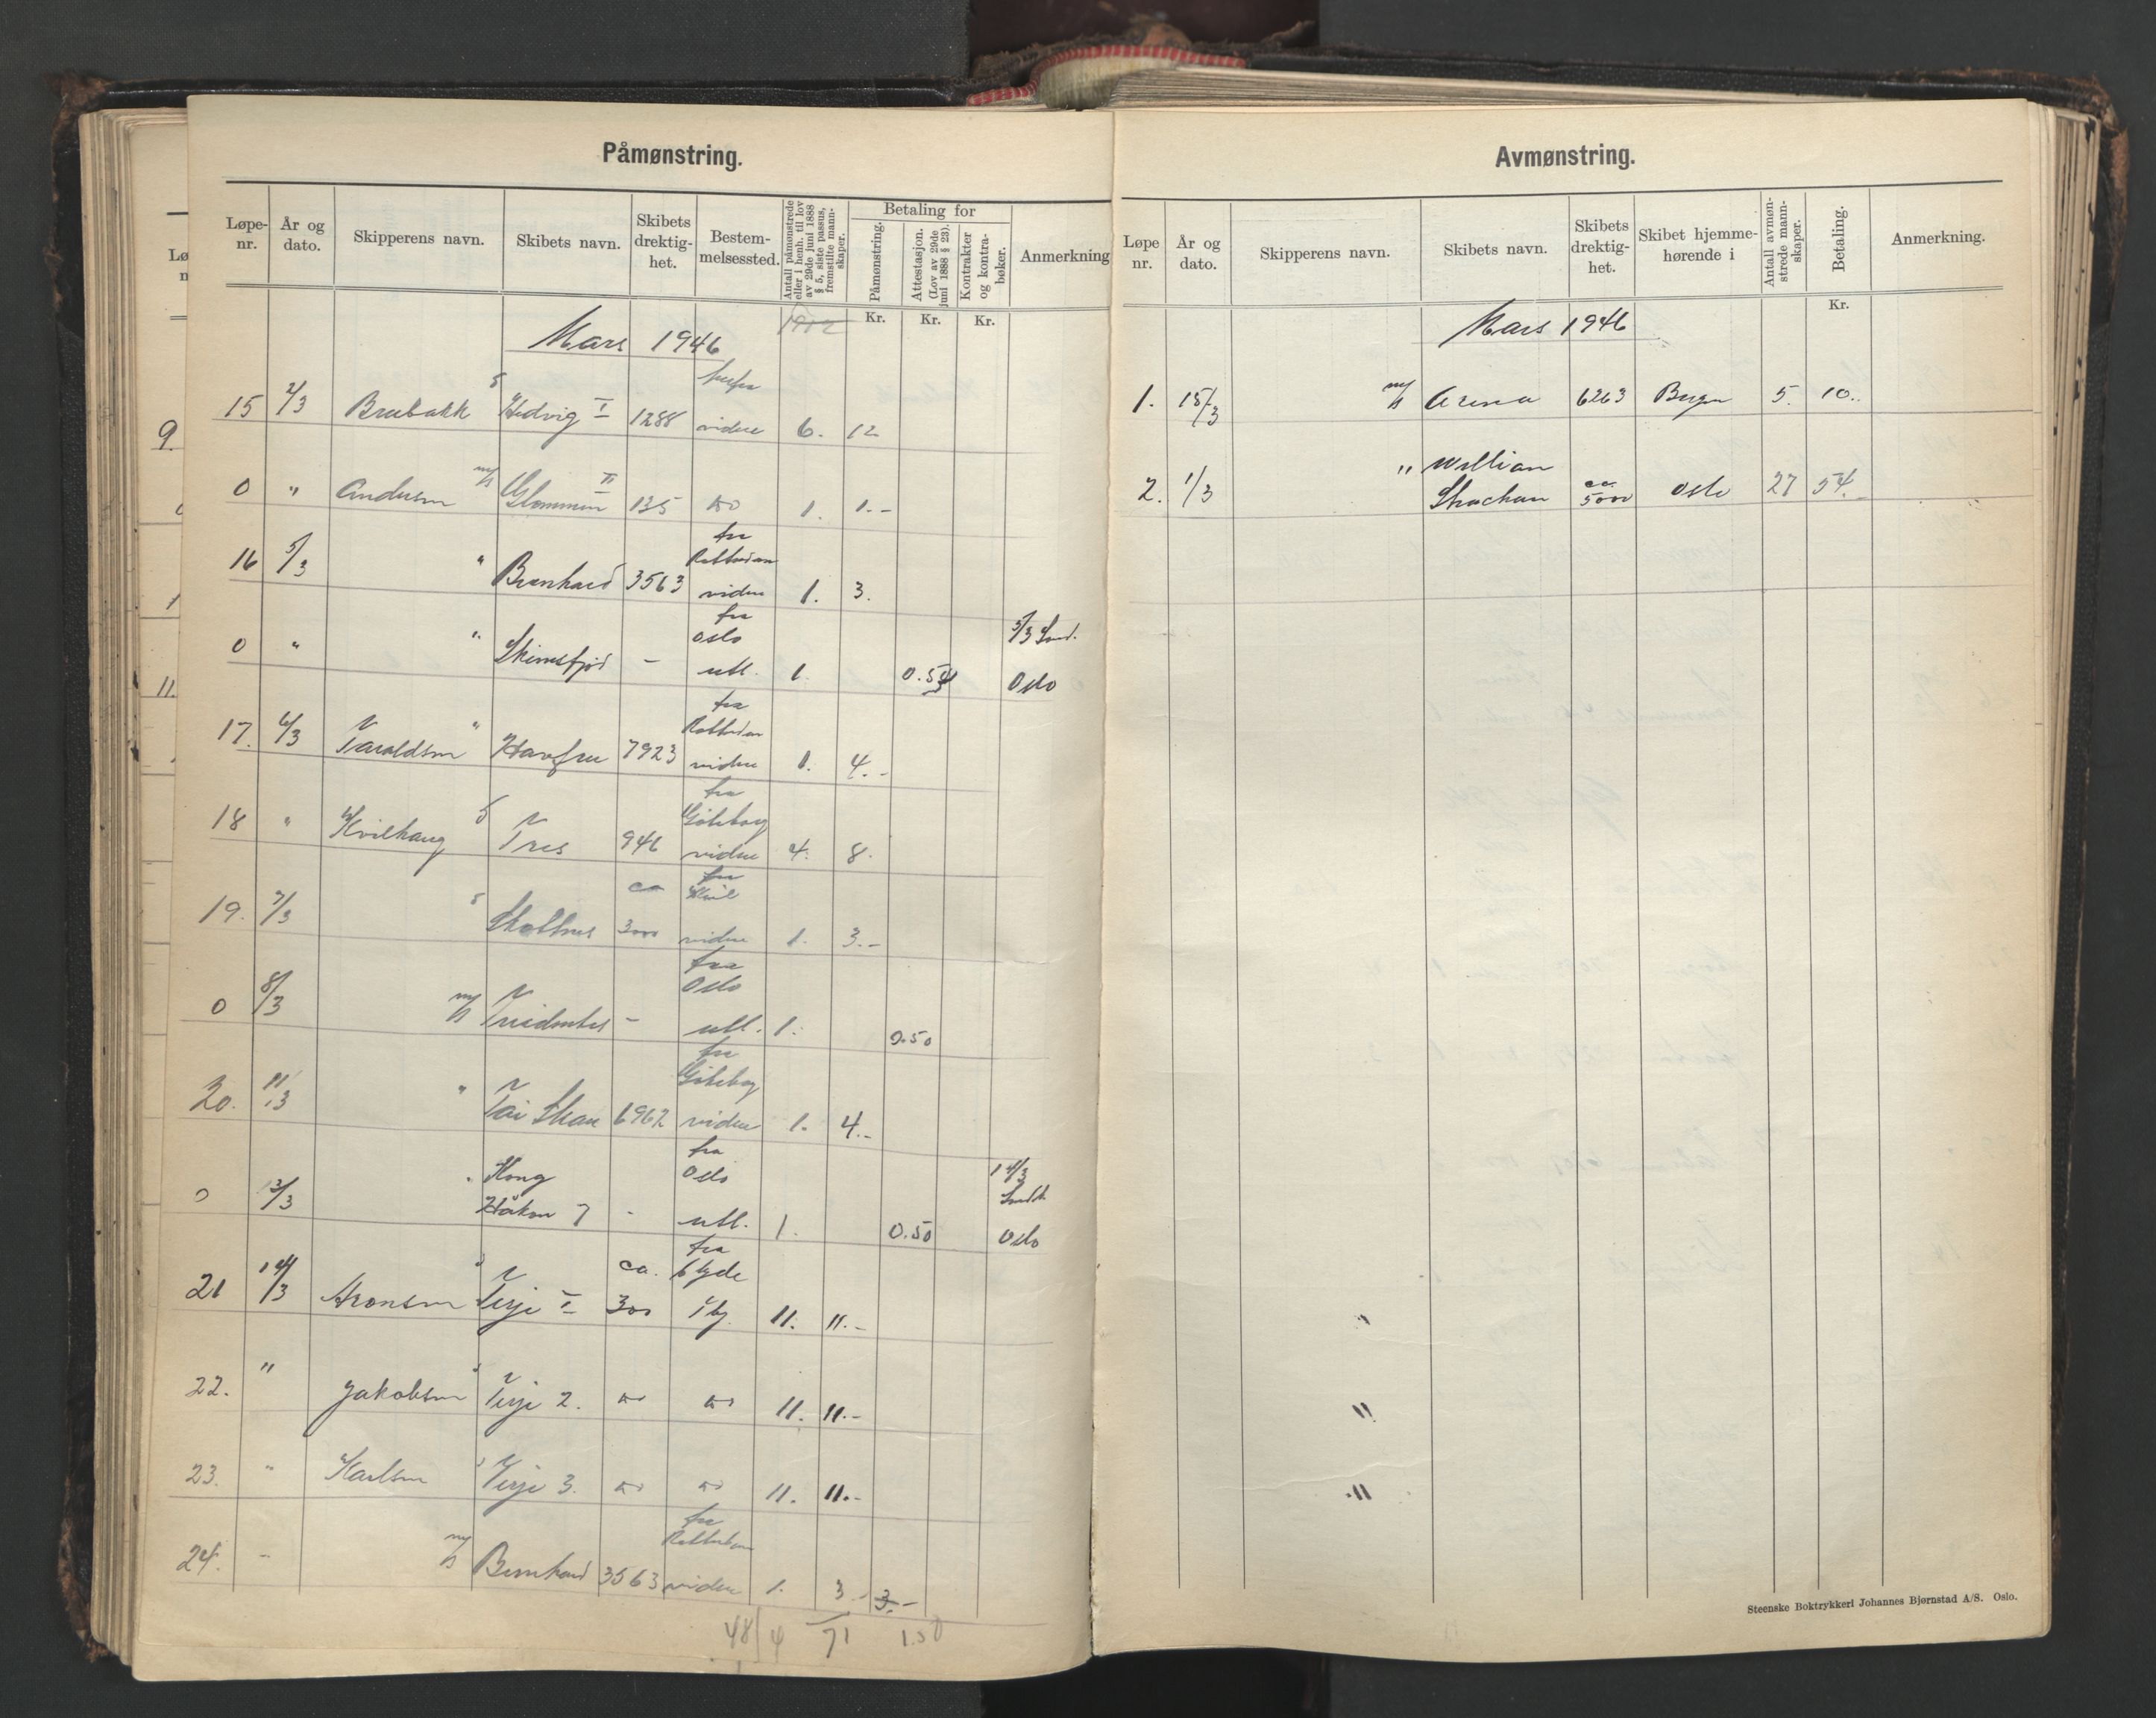 Påmønstring.
Løpe-nr. År og dato. Skipperens navn. Skibets navn. Skibets drektig-het. Bestem-melsessted. Antall påmønstrede eller i henh. til lov av 29de juni 1888 § 5, siste passus, fremstilte mann-skaper. Betaling for Påmønstring. Attestasjon. (Lov av 29de juni 1888 § 23). Kontrakter og kontra-bøker. Anmerkning
Kr. Kr. Kr.
Mars 1946
15 2/3 Brubakk S Hedvig I 1288 videre 6. 12
0 " Andersen m/s Glommen II 135 do 1. 1.-
16 5/3 " Bernhard 3563 fra Rotterdam videre 1. 3.
0 " " Skimsfjord - fra Oslo utl. 1. 0.50 5/3 Oslo
17. 6/3 Taraldsen " Havfru 7923 fra Rotterdam videre 1. 4.-
18 " Kvilhaug S Tres 946 fra Göteborg videre 4. 8.
19. 7/3 S ca 3000 fra videre 1. 3.-
0 8/3 m/s Tridentes - fra Oslo utl. 1. 0.50
20. 11/3 " Tai Shan 6962 fra Göteborg videre 1. 4.-
0 13/3 " Kong Håkon 7 - fra Oslo utl. 1. 0.50 14/3 Oslo
21 14/3 Aronsen Terje I ca. 300 fra byde 11. 11.-
22. " Jakobsen Terje 2. do do 11. 11.-
23. " Karlsen Terje 3. do do 11. 11.-
24. - m/s Bernhard 3563 fra Rotterdam videre 1. 3.- 3.-
48 4 71 1.50
Avmønstring.
Løpe nr. År og dato. Skipperens navn. Skibets navn. Skibets drektig-het. Skibet hjemme-hørende i Antall avmøn-strede mann-skaper. Betaling. Anmerkning.
Kr.
Mars 1946
1. 15/3 m/s Arena 6263 Bergen 5. 10..
2. 1/3 " William Strachan ca. 5000 Oslo 27 54.-
"
"
"
Steenske Boktrykkeri Johannes Bjørnstad A/S. Oslo.